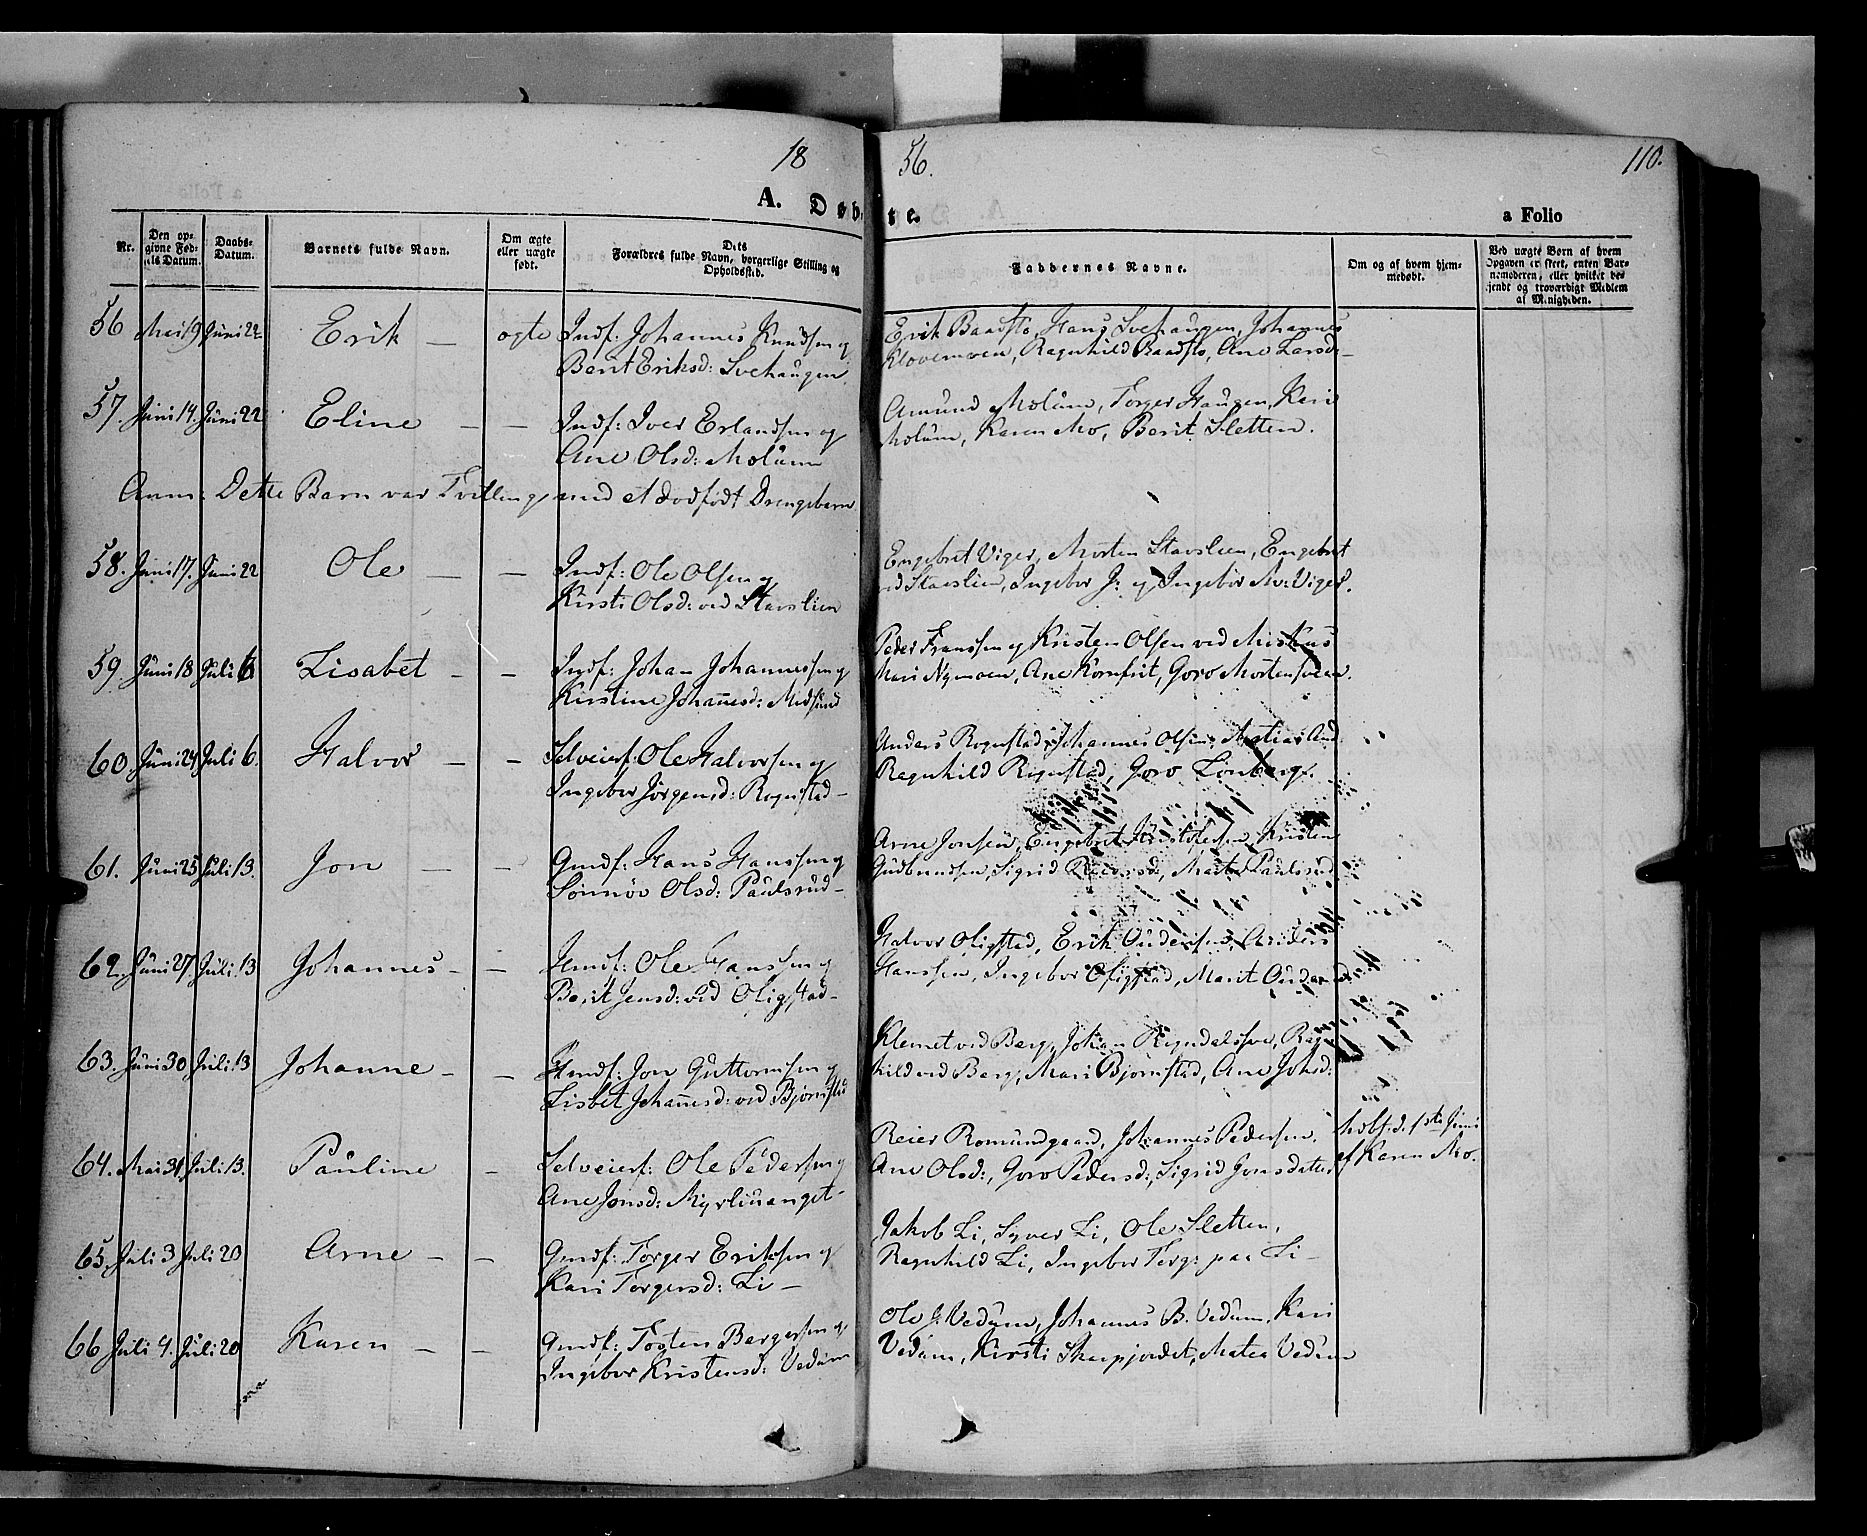 18 56. 110.
A. Døbte. a Folio
Nr. Den opgivne Fødsels Datum. Daabs-Datum. Barnets fulde Navn. Om ægte eller uægte født. Dets Forældres fulde Navn, borgerlige Stilling og Opholdssted. Faddernes Navne. Om og af hvem hjemmedøbt. Ved uægte Børn af hvem Opgaven er skeet, enten Barnemoderen, eller hvilket bekjendt og troværdigt Medlem af Menigheden.
56 Mai 19 Juni 22 Erik — ægte Indf: Johannes Knudsen og Erik Baadstø, Hans Svehaugen, Johannes
Berit Eriksd: Svehaugen Klovemoen, Ragnhild Baadstø, Ane Larsd: —
57. Juni 14. Juni 22 Eline — — Indf: Iver Erlandsen og Amund Molùm, Torger Haugen, Kari
Ane Olsd: Molùm Molùm, Karen Mo, Berit Sletten.
Anm: Dette Barn var Tvilling med et dødfødt Drengebarn
58. Juni 17. Juni 22 Ole — — Indf: Ole Olsen og Engebret Viger, Morten Stavslien, Engebret
Kirsti Olsd: ved Stavslien ved Stavslien, Ingebor J: og Ingebor M: Viger.
59. Juni 18 Juli 6 Lisabet — — Indf: Johan Johannessen og Peder Franssen og Kristen Olsen ved
Kirstine Johannesd: Mari Nymoen, Ane Kornfrit, Goro Mortensveen.
60 Juni 24 Juli 6. Halvor — — Selveierf: Ole Halvorsen og Anders Rognstad, Johannes Olsen,
Ingebor Jörgensd: Rognstad — Ragnhild Rognstad, Goro Lönberg.
61. Juni 25 Juli 13. Jon — — Gmdf: Hans Hanssen og Arne Jonsen, Engebret Kristofersen, Kristen
Sönnöv Olsd: Paulsrud — Gudbrandsen, Sigrid Marte Paulsrud
62. Juni 27. Juli 13 Johannes — — Hmdf: Ole Hanssen og Halvor Oligstad, Erik Anders
Berit Jensd: ved Oligstad — Hanssen, Ingebor Oligstad, Marit
63. Juni 30 Juli 13 Johanne — — Hmdf: Jon Guttormsen og Klemet ved Berg, Johan Ragn-
Lisbet Johannesd: ved Bjørnstad hild ved Berg, Mari Bjørnstad, Ane Johsd:
64. Mai 31. Juli 13. Pauline — Selveierf: Ole Pedersen og Reier Romundgaard, Johannes Pedersen, d. 1ste Juni
Ane Jonsd: Myrlienget — Ane Olsd:, Goro Pedersd:, Sigrid Jonsdatter af Karen Mo.
65. Juli 3 Juli 20 Arne — — Gmdf: Torger Eriksen og Jakob Li, Syver Li, Ole Sletten,
Kari Torgersd: Li — Ragnhild Li, Ingebor Torg: paa Li —
66 Juli 4. Juli 20 Karen — — Gmdf: Tosten Bergersen og Ole J: Vedum, Johannes B. Vedum, Kari
Ingebor Kristensd: Vedum Vedum, Kirsti Skarpjordet, Matea Vedum